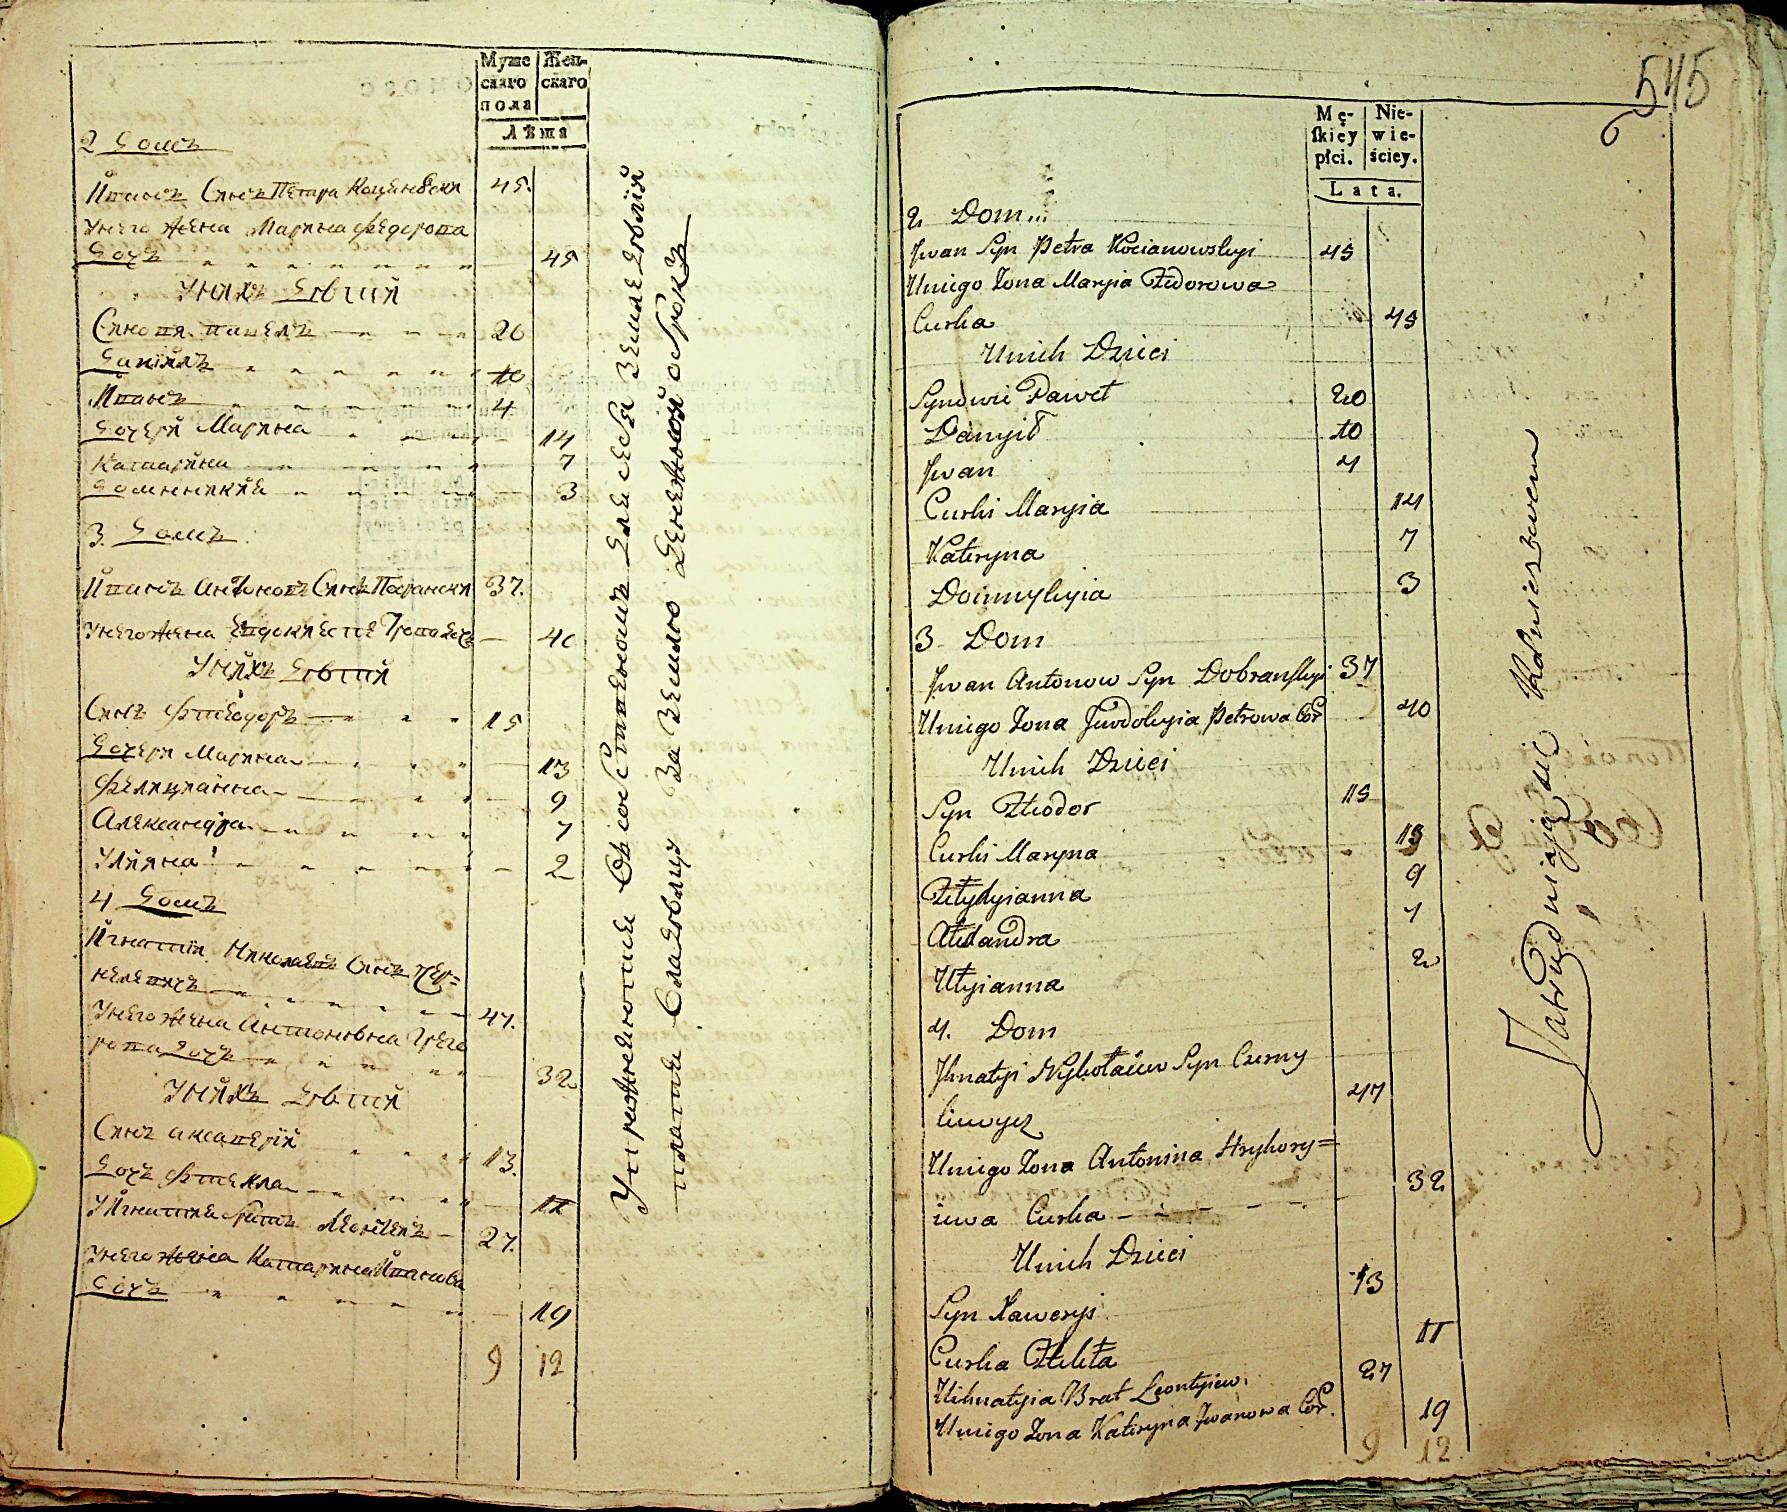 Муже
скаго
пола
Жен-
скаго
Лѣта
2 Домъ
Иванъ Сынъ Петра Коцановски 45.
Унего жена Марина Федорова
Дочь 45
Унихъ Дѣтий
Синовя павелъ 20
Данiилъ 10
Иванъ 4
Дочери Марина 14
Катарина 7
Домникия 3
3. Домъ
Иванъ Антоновъ Синъ 37.
Унего жена 40
Унихъ Дѣтий
Синъ Фтеодоръ 15
Дочери Марина 13
Фелицианна 9
Александра 7
Улияна 2
4 Домъ
Игнатий Николаевъ Синъ Чер=
нелевичъ 47.
Унего жена Антоновна Григо
рова Дочь 32
Унихъ Дѣтий
Синъ Ксаверiй 13.
Дочъ Фтекла 11
УИгнатия братъ Леонтей 27.
Унего жена Катарина Иванова
Дочъ 19
9 12
Упражняющие Земледѣлия
платя Владѣльцу За Землю Денежной оброкъ
545
6
Mę-
skiey
płci.
Nie-
wie-
ściey.
Lata.
2 Dom...
Jwan Syn Petra Kocianowskyi 45
Uniego Zona Maryia Fedorowa
Curka 45
Unich Dzieci
Synowie Paweł 20
Danyił 10
Jwan 4
Curki Maryia 14
Kateryna 7
Domnykyia 3
3 Dom
Jwan Antonow Syn Dobranskyi 37
Uniego Zona Jewdokyia Petrowa Cor 40
Unich Dzieci
Syn Fteodor 15
Curki Maryna 13
Fełycyianna 9
Alexandra 7
Ułyianna 2
4. Dom
Jhnatyi Nykołaiew Syn Czerny
liewycz 47
Uniego Zona Antonina Hryhory=
iewa Curka 32
Unich Dzieci
Syn Xaweryi 13
Curka Ftekła 11
UIhnatyia Brat Leontyiew 27
Uniego Zona Kateryna Jwanowa Cor. 19
9 12
Zatrudniaią się Rolnictwem